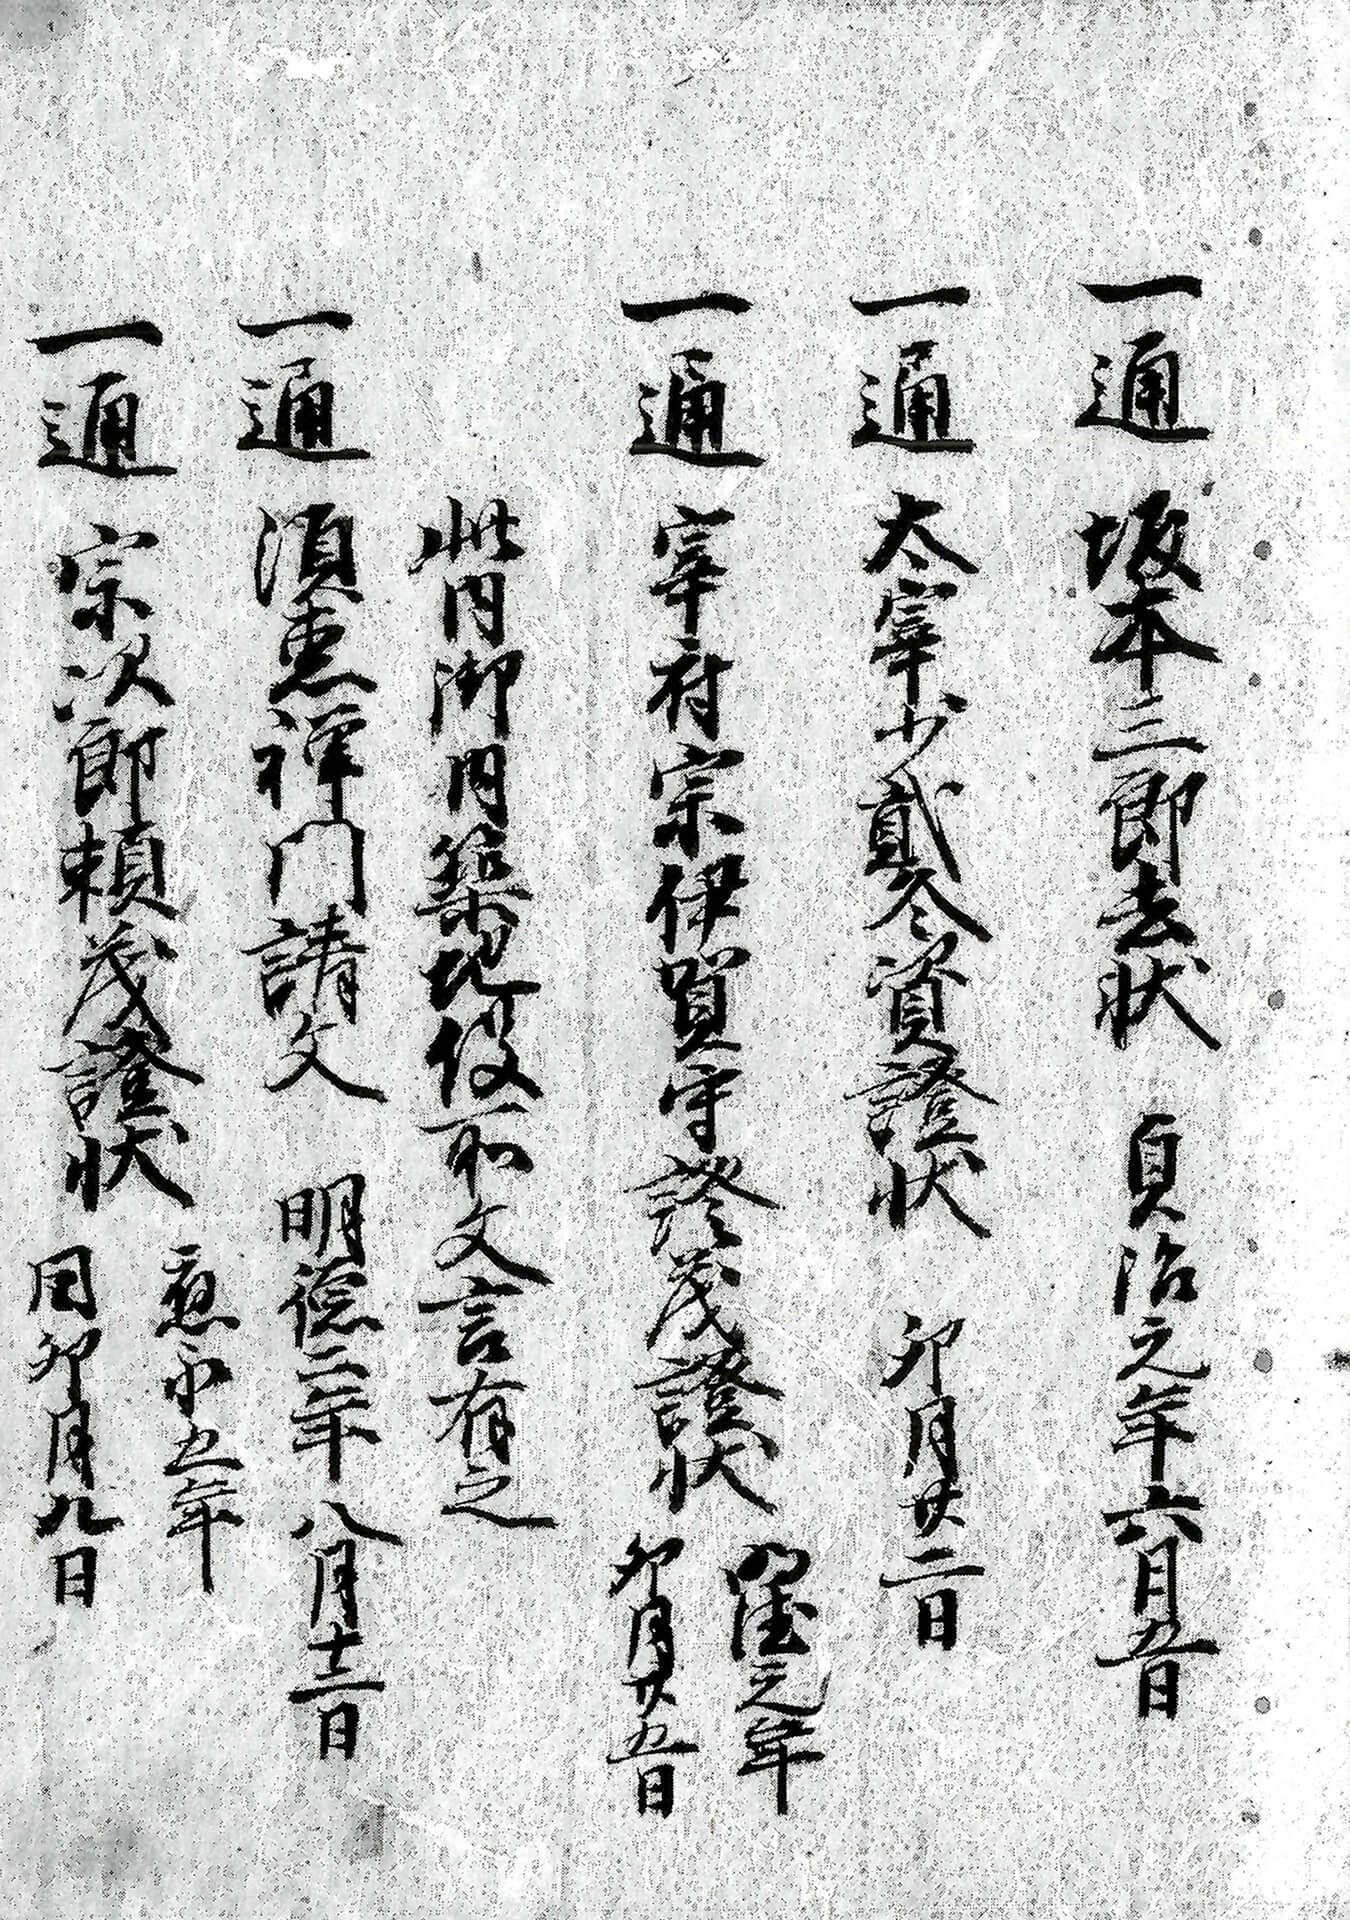 一通 坂本三郎去状 貞治元年六月五日
一通 太宰少貳冬資證状 卯月廿二日
一通 宰府宗伊賀守證茂證状 応安元年 卯月廿五日
此内御用築地役所文言有之
一通 須恵禅門請文 明徳二年八月十三日
一通 宗次郎頼茂證状 應永五年 同卯月九日